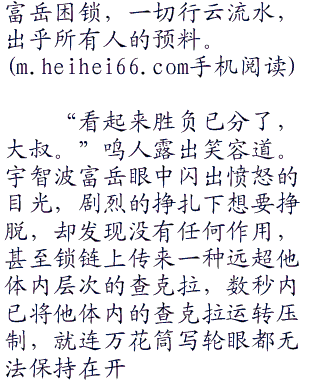 富岳困锁，一切行云流水，
出乎所有人的预料。
(m.heihei66.com手机阅读)
“看起来胜负已分了，
大叔。”鸣人露出笑容道。
宇智波富岳眼中闪出愤怒的
目光，剧烈的挣扎下想要挣
脱，却发现没有任何作用，
甚至锁链上传来一种远超他
体内层次的查克拉，数秒内
已将他体内的查克拉运转压
制，就连万花筒写轮眼都无
法保持在开